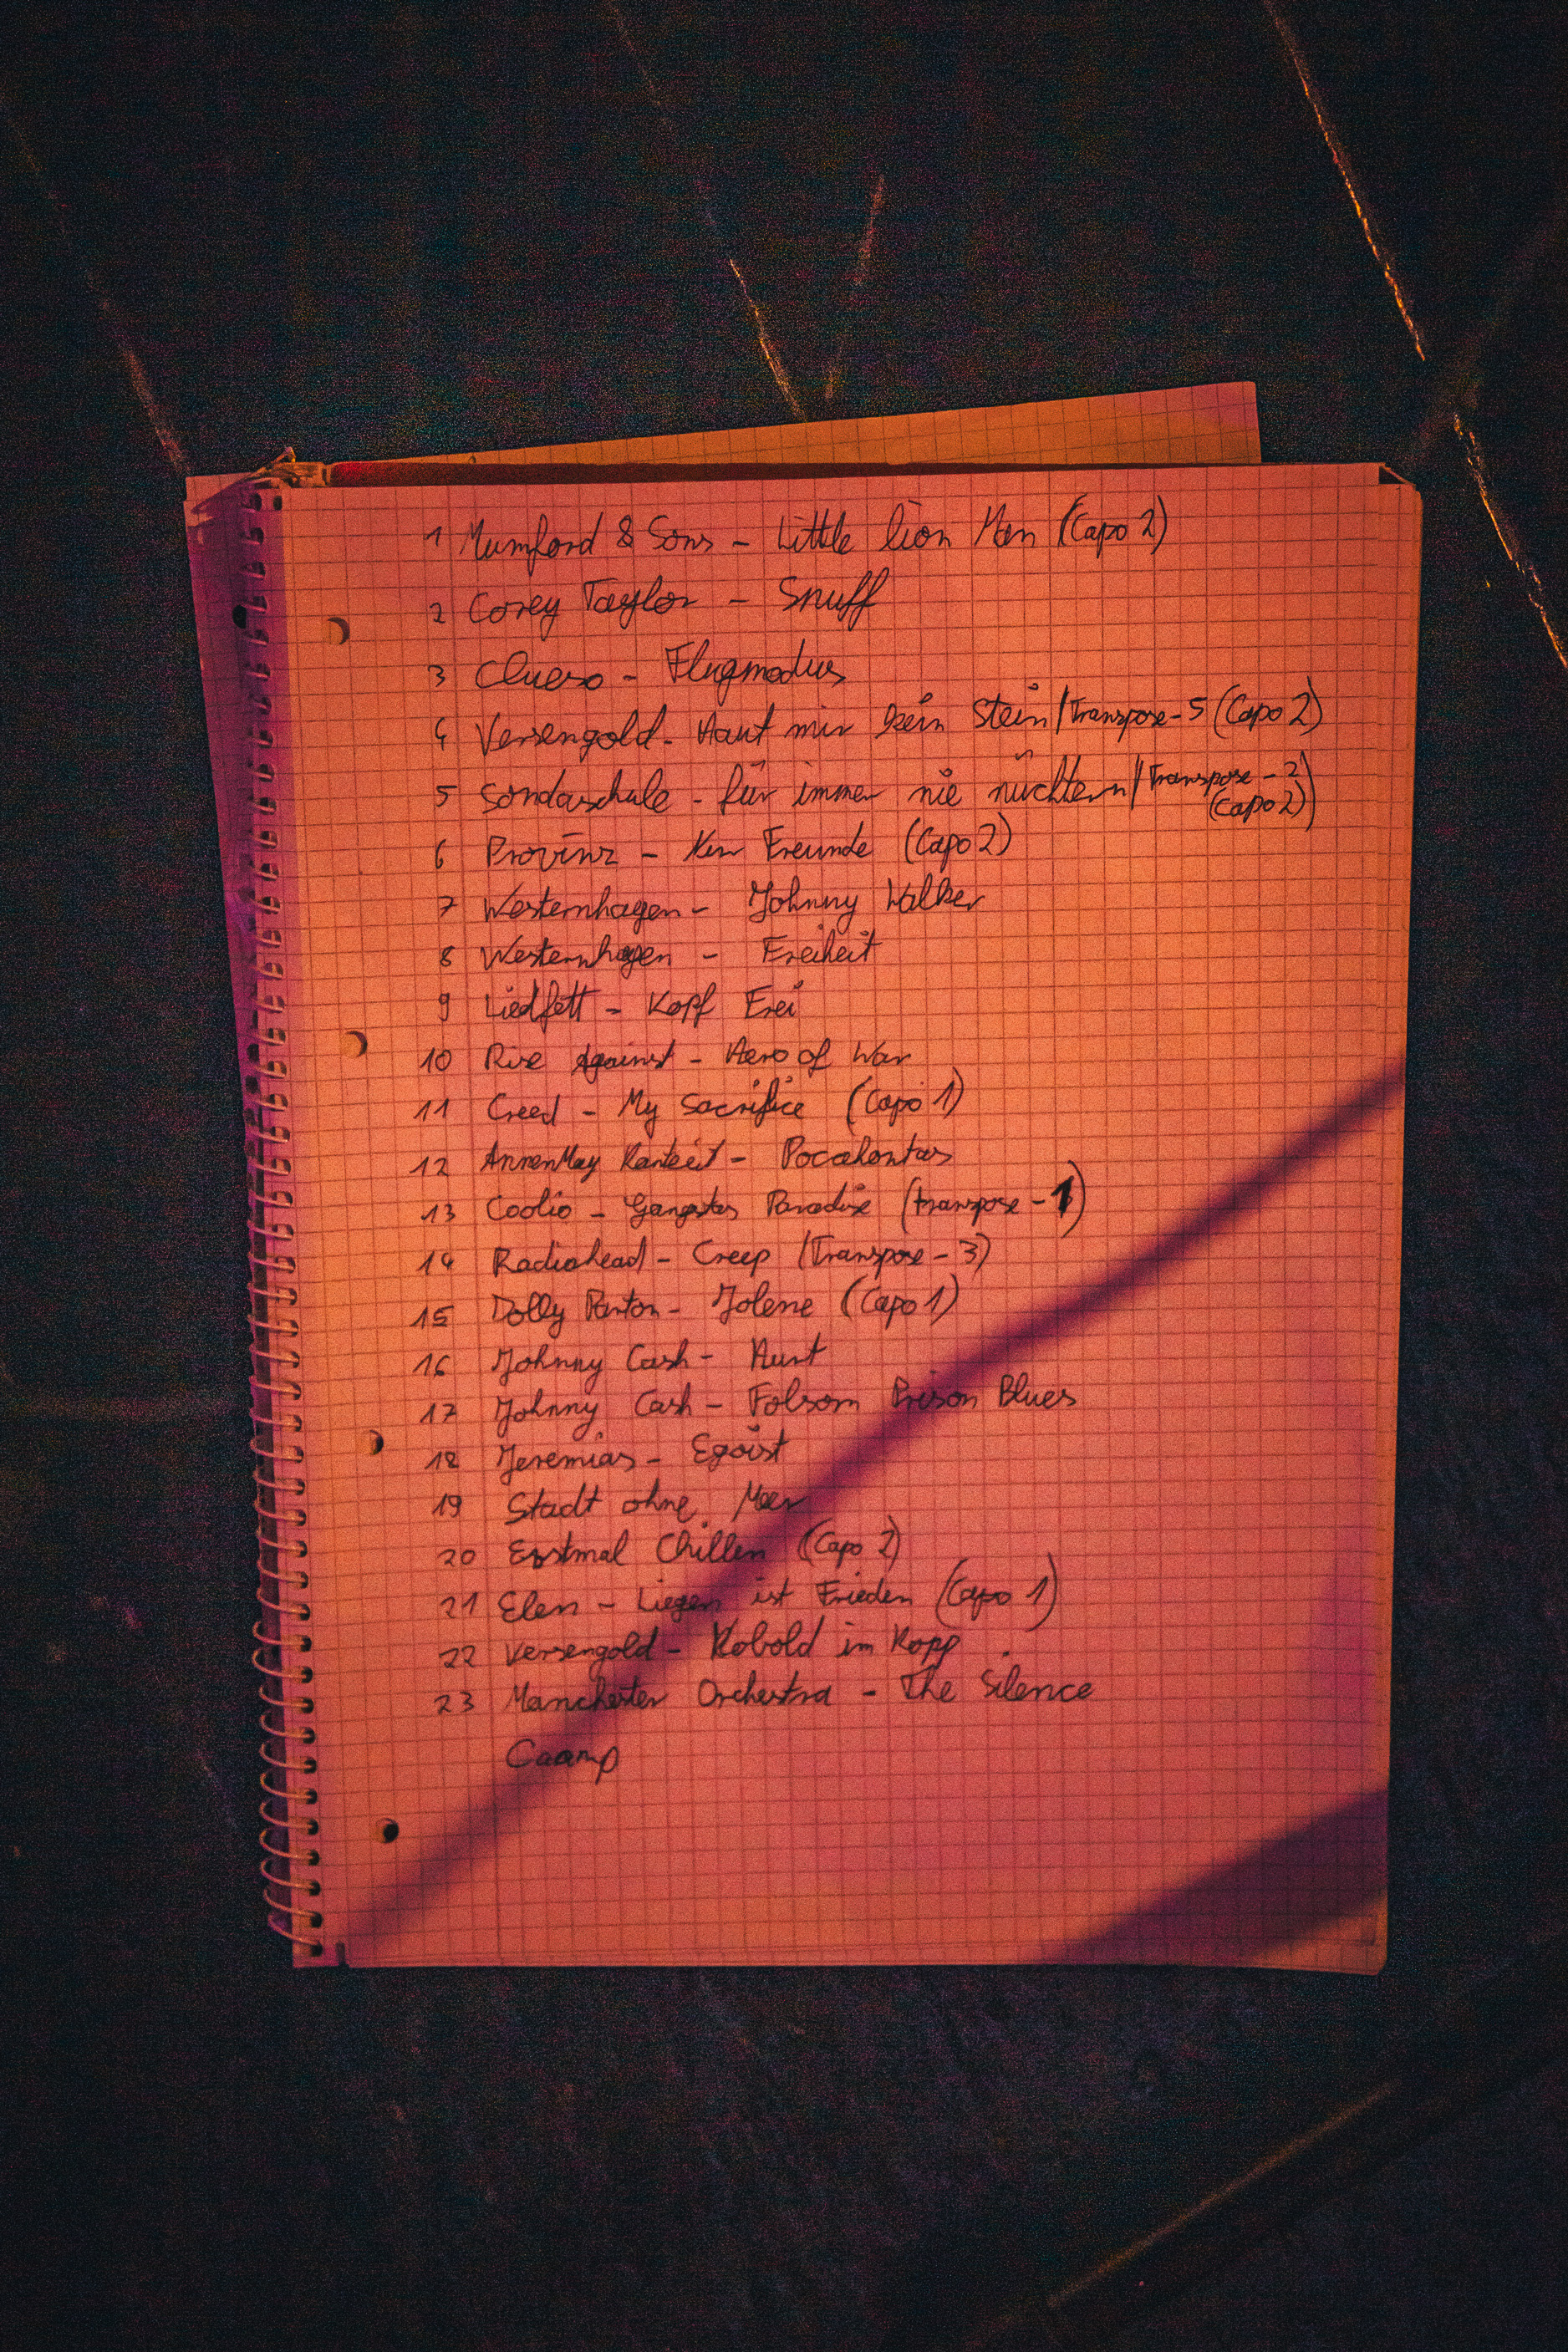 1 Mumford & Sons - Little lion Man (Capo 2)
2 Corey Taylor - Snuff
3 Clueso - Flugmodus
4 Versengold - Haut mir kein Stein (Transpose - 5 (Capo 2)
5 Sondaschule - für immer nie nüchtern (Transpose - 2
(Capo 2))
6 Provinz - Freunde (Capo 2)
7 Westernhagen - Johnny Walker
8 Westernhagen - Freiheit
9 Liedfett - Kopf Frei
10 Rise Against - Hero of War
11 Creed - My Sacrifice (Capo 1)
12 AnnenMay Kantereit - Pocahontas
13 Coolio - Gangstas Paradise (transpose - 1)
14 Radiohead - Creep (Transpose - 3)
15 Dolly Parton - Jolene (Capo 1)
16 Johnny Cash - Hurt
17 Johnny Cash - Folsom Prison Blues
18 Jeremias - Egoist
19 Stadt ohne Meer
20 Erstmal Chillen (Capo 2)
21 Elen - Liegen ist Frieden (Capo 1)
22 Versengold - Kobold im Kopp
23 Manchester Orchestra - The Silence
Caamp